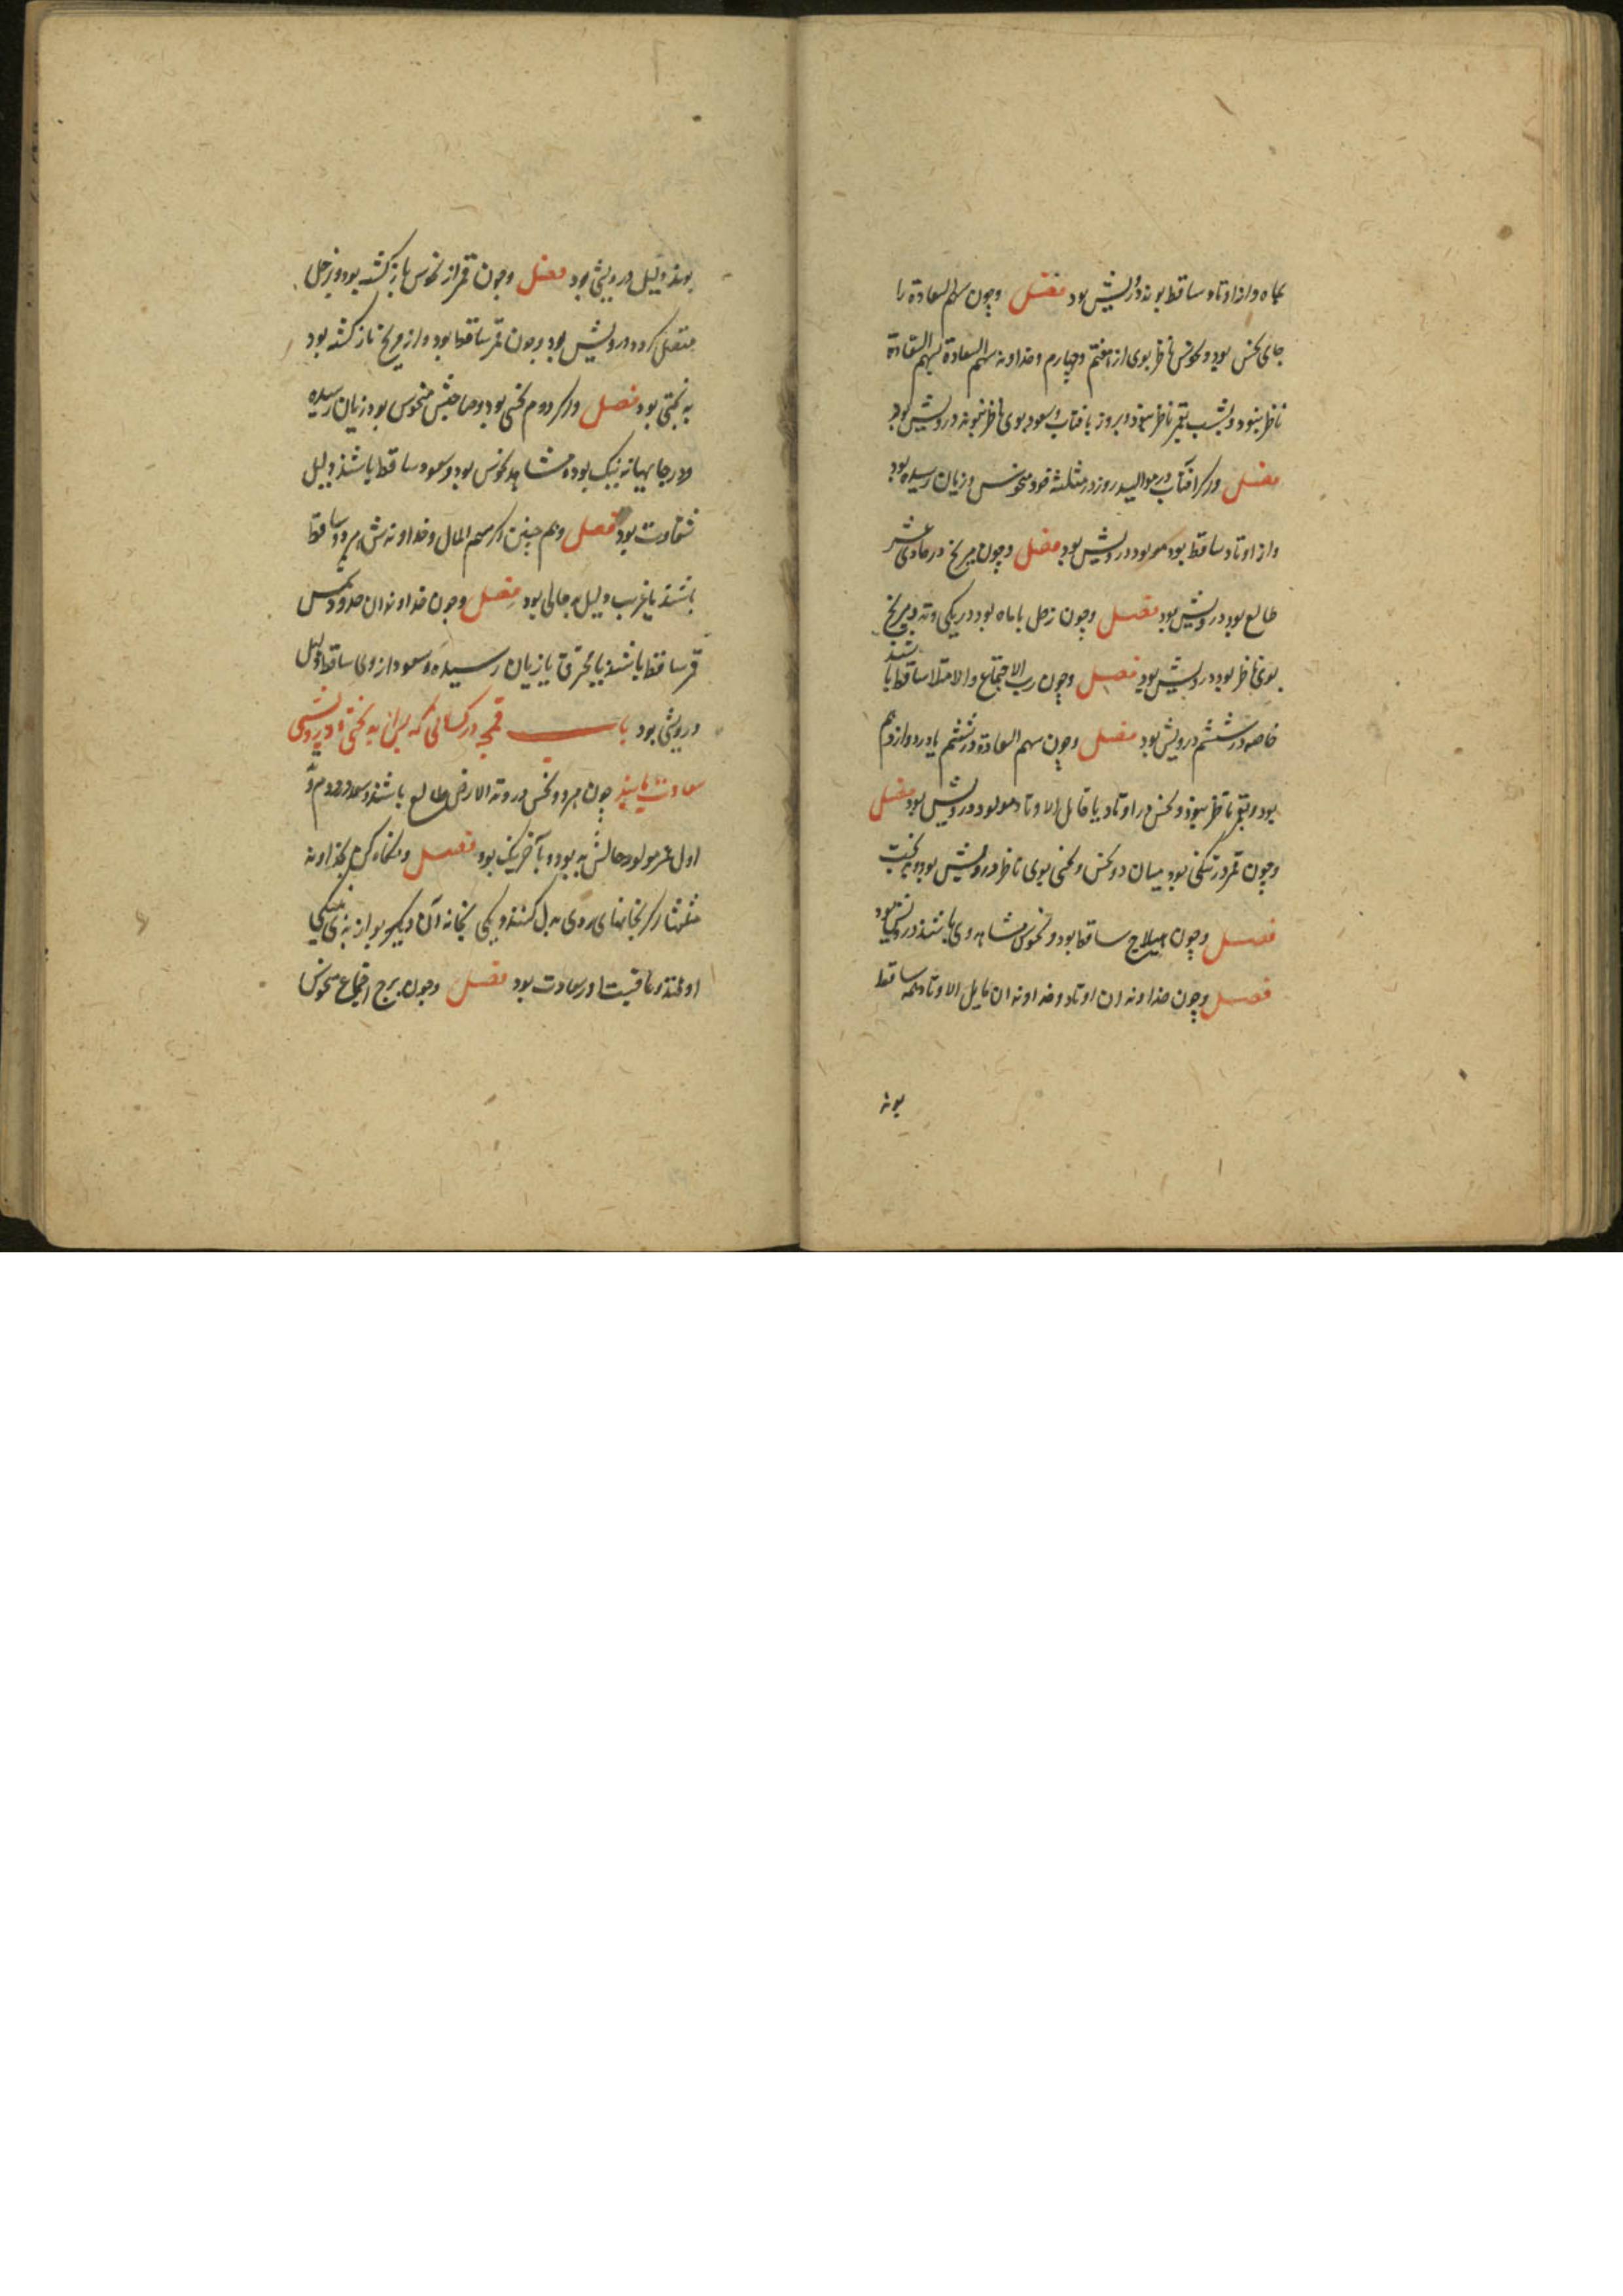 بماه و از اوتاد ساقط بوند درویش بود فصل و چون سهم السعادة را
جای نحس بود و نحوس ناظر بوی از هفتم و چهارم و خداوند سهم السعادة بسهم السعادة
ناظر نبود و بشب بقمر ناظر نبود و بروز بافتاب و سعود بوی ناظر نبوند درویش بود
فصل و اکر افتاب در موالید روز در مثلثه خود منحوس و زیان رسیده بود
و از اوتاد ساقط بود مولود درویش بود فصل و چون مریخ در حادی عشر
طالع بود درویش بود فصل و چون زحل با ماه بود در یکی وتد و مریخ
بوی ناظر بود درویش بود فصل و چون رب الاجتماع و الامتلا ساقط باشند
خاصه در ششم درویش بود فصل و چون سهم السعادة در ششم یا در دوازدهم
بود و بقمر ناظر نبود و نحس در اوتاد یا مایل الاوتاد مولود درویش بود فصل
و چون قمر در تنکی بود میان دو نحس و نحسی بوی ناظر درویش بود و بدبخت
فصل و چون هیلاج ساقط بود و نحوس مشاهد وی باشند درویش بود
فصل و چون خداوندان اوتاد و خداوندان مایل الاوتاد همه ساقط
بوند
بوند دلیل درویشی بود فصل و چون قمر از نحوس بازکشته بود و بزحل
متصل کردد درویش بود و چون قمر ساقط بود و از مریخ بازکشته بود
بدبختی بود فصل و اکر در دوم نحسی بود و صاحبش منحوس بود زیان رسیده
و در جایهای نه نیک بود و مشاهد نحوس بود و سعود ساقط باشند دلیل
شقاوت بود فصل و هم چنین اکر سهم المال و خداوندش هر دو ساقط
باشند یا غرب دلیل بدحالی بود فصل و چون خداوندان حدود شمس
قمر ساقط باشند یا محترق یا زیان رسیده و سعود از وی ساقط دلیل
درویشی بود باب در کسانی که پس از بدبختی و درویشی
سعادت یابند چون هر دو نحس در وتد الارض طالع باشند و سعد در دوم و
اول عمر مولود حالش بد بود و بآخر نیک بود فصل و نکاه کن بخداوند
مثلثات اکر بخانهای بدل کنند و یکی بخانه آن دیکر بود از بدی بنیکی
اوفتد و عاقبت او سعادت بود فصل و چون برج اجتماع منحوس